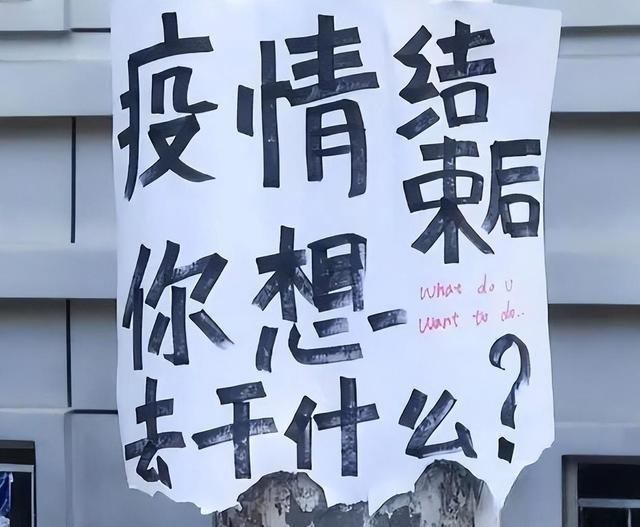 疫情结
束后
你想-
what do u
want to do..
去干什么?